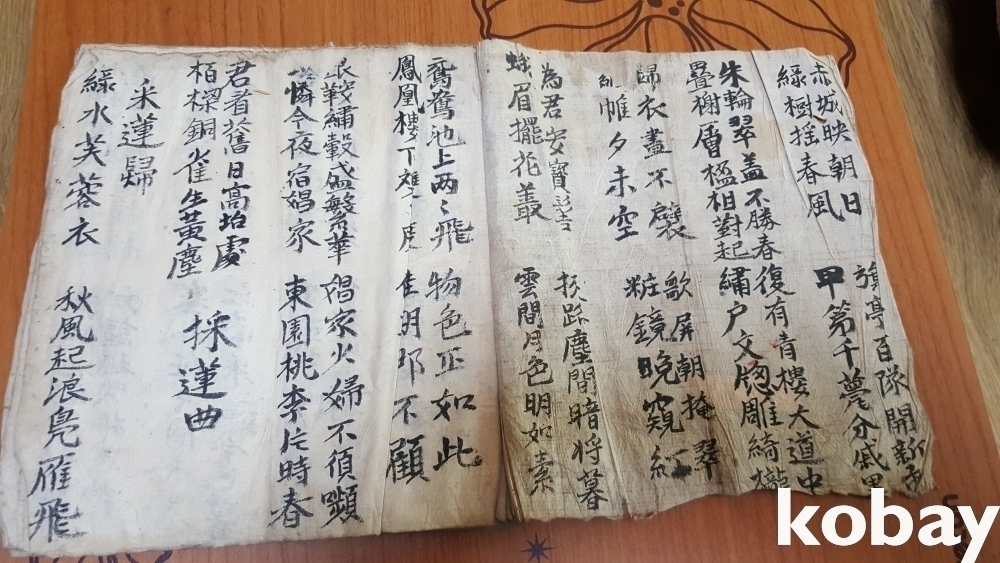 赤城映朝日
綠樹揺春風
亭百隊開新市
甲第千甍分戚里
朱輪翠盖不勝春
疊榭層楹相對起
復有青樓大道中
繡户文窓雕綺櫳
歸衣盡不襞
幃夕未空
歌屏朝掩翠
粧鏡晚窺紅
為君安寶
蛾眉擺花叢
塵間暗将暮
雲間月色明如素
鴛鴦池上两〻飛
鳳凰樓下雙〻度
物色正如此
佳期那不顧
銀鞍繡轂盛繁華
憐今夜宿娼家
娼家火婦不湏嚬
東園桃李片時春
君看舊日高坮處
栢樑銅雀生黃塵
採蓮曲
采蓮歸
綠水芙蓉衣
秋風起浪鳧雁飛
kobay